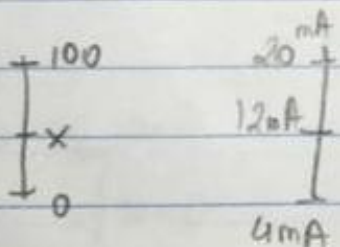 100 20 mA
x 12mA
0
4mA